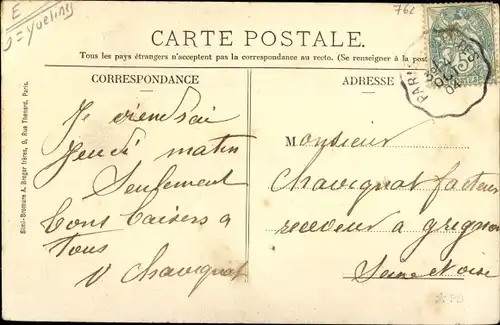 E
J = Yvelines
762
CARTE POSTALE.
Tous les pays étrangers n'acceptent pas la correspondance au recto. (Se renseigner à la poste
CORRESPONDANCE
ADRESSE
PARIS
Je viendrai
Jeudi matin
Seulement
bons baisers a
tous
V Chavignat
Monsieur
Chavignat facteur
receveur a grignon
Seine & Oise
Simi-Bromure A. Breger frères, 9, Rue Thénard, Paris.